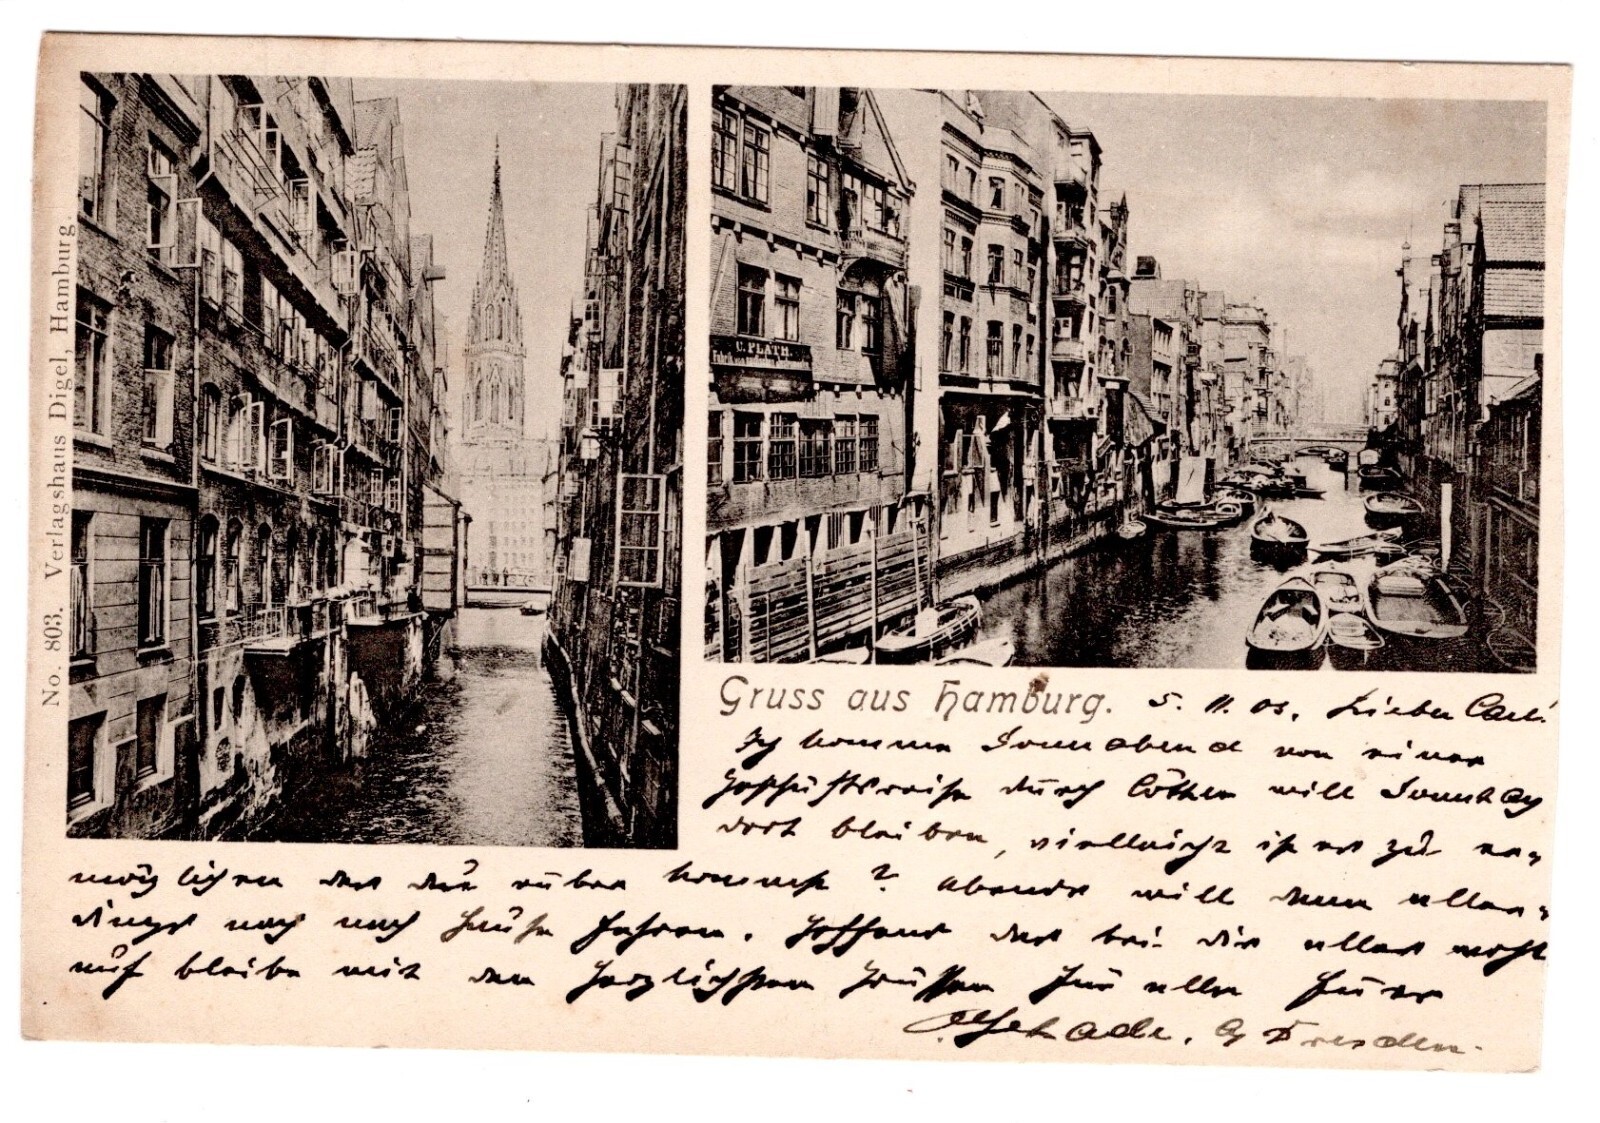 No. 803. Verlagshaus Digel, Hamburg.
C. PLATH.
Gruss aus Hamburg. 5. 11. 03. Lieber Carl!
Ich komme Sonnabend von einer
Geschäftsreise durch Cöthen will Sonntag
dort bleiben, vielleicht ist es zu er-
möglichen daß du rüber kommst? Abends will dann aller-
dings noch nach Hause fahren. Hoffend daß bei dir alles wohl
auf bleibe mit den herzlichsten Grüßen für alle Euer
Dresden.